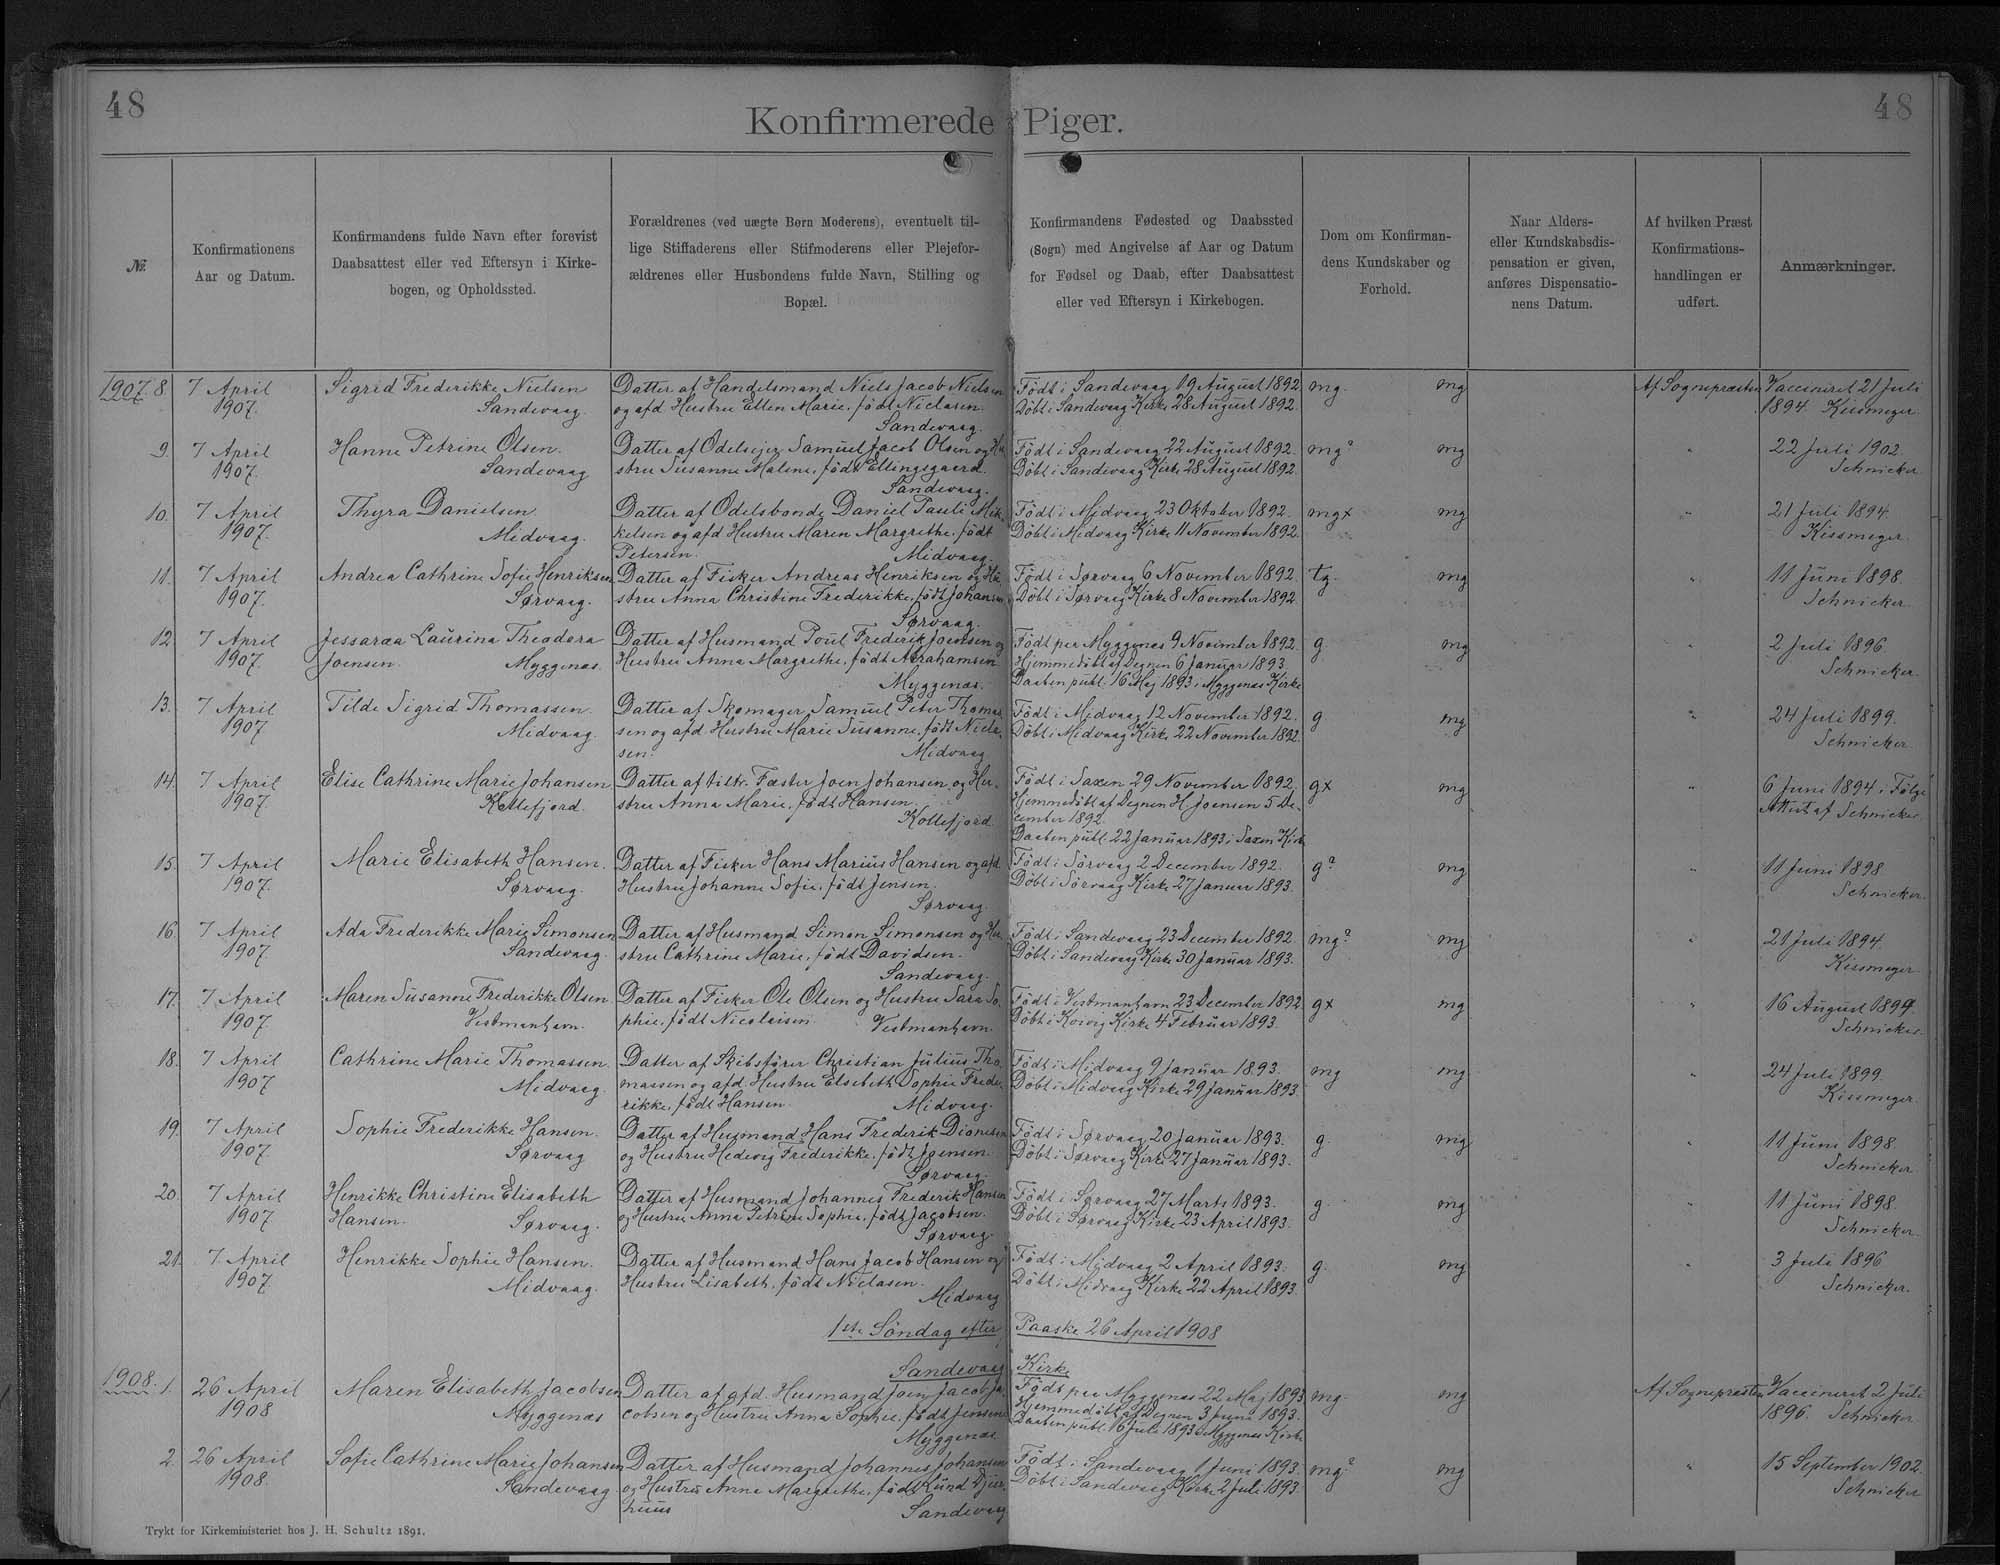 48
48
Konfirmerede Piger.
№.
Konfirmationens
Aar og Datum.
Konfirmandens fulde Navn efter forevist
Daabsattest eller ved Eftersyn i Kirke-
bogen, og Opholdssted.
Forældrenes (ved uægte Børn Moderens), eventuelt til-
lige Stiffaderens eller Stifmoderens eller Plejefor-
ældrenes eller Husbondens fulde Navn, Stilling og
Bopæl.
Konfirmandens Fødested og Daabssted
(Sogn) med Angivelse af Aar og Datum
for Fødsel og Daab, efter Daabsattest
eller ved Eftersyn i Kirkebogen.
Dom om Konfirman-
dens Kundskaber og
Forhold.
Naar Alders-
eller Kundskabsdis-
pensation er given,
anføres Dispensatio-
nens Datum.
Af hvilken Præst
Konfirmations-
handlingen er
udført.
Anmærkninger.
1907. 8.
7 April
1907.
Sigrid Frederikke Nielsen
Sandevaag.
Datter af Handelsmand Niels Jacob Nielsen
og afd. Hustru Ellen Marie, født Niclasen.
Sandevaag.
Født i Sandevaag 19 August 1892
Döbt i Sandevaag Kirke 28 August 1892.
mg. mg
Af Sognepræsten
Vaccineret 21 Juli
1894. Kissmeyer.
9.
7 April
1907.
Hanne Petrine Olsen.
Sandevaag
Datter af Odelsejer Samuel Jacob Olsen og Hu
stru Susanne Malene, født Ellingsgaard.
Sandevaag.
Født i Sandevaag 22 August 1892.
Döbt i Sandevaag Kirke 28 August 1892.
mg? mg
"
22 Juli 1902.
Schnicker.
10.
7 April
1907.
Thyra Danielsen
Midvaag.
Datter af Odelsbonde Daniel Pauli Mik-
kelsen og afd. Hustru Maren Margrethe, født
Petersen. Midvaag.
Født i Midvaag 23 Oktober 1892.
Döbt i Midvaag Kirke 11 November 1892.
mgx mg
"
21 Juli 1894.
Kissmeyer.
11.
7 April
1907.
Andrea Cathrine Sofie Henriksen
Sørvaag.
Datter af Fisker Andreas Henriksen og Hu-
stru Anna Christine Frederikke, født Johansen
Sørvaag.
Født i Sørvaag 6 November 1892.
Döbt i Sørvaag Kirke 8 November 1892
tg. mg
"
11 Juni 1898.
Schnicker.
12.
7 April
1907.
Jessaræa Laurina Theodora
Joensen. Myggenæs.
Datter af Husmand Poul Frederik Joensen og
Hustru Anna Margrethe, født Abrahamsen
Myggenæs.
Født paa Myggenæs 9 November 1892.
Hjemmedöbt af Degnen 6 Januar 1893.
Daaben publ. 16 Maj 1893 i Myggenæs Kirke
g. mg
"
2 Juli 1896.
Schnicker.
13.
7 April
1907.
Tilde Sigrid Thomassen.
Midvaag.
Datter af Skomager Samuel Peter Thomas
sen og afd. Hustru Marie Susanne, født Nicla-
sen. Midvaag
Født i Midvaag 12 November 1892.
Döbt i Midvaag Kirke 22 November 1892.
g mg
"
24 Juli 1899.
Schnicker
14.
7 April
1907.
Elise Cathrine Marie Johansen
Kollefjord.
Datter af Fæster Joen Johansen og Hu-
stru Anna Marie, født Hansen.
Kollefjord.
Født i Saxen 29 November 1892.
Hjemmedöbt af Degnen H Joensen 5 De-
cember 1892.
Daaben publ. 22 Januar 1893 i Saxen Kirke
gx mg
"
6 Juni 1894 i Følge
Attest af Schnicker.
15.
7 April
1907.
Marie Elisabeth Hansen.
Sørvaag.
Datter af Fisker Hans Marius Hansen og afd.
Hustru Johanne Sofie, født Jensen.
Sørvaag.
Født i Sörvaag 2 December 1892.
Döbt i Sörvaag Kirke 27 Januar 1893.
g? mg
"
11 Juni 1898
Schnicker.
16.
7 April
1907.
Ada Frederikke Marie Simonsen
Sandevaag.
Datter af Husmand Simon Simonsen og Hu
stru Cathrine Marie, født Davidsen.
Sandevaag.
Født i Sandevaag 23 December 1892.
Döbt i Sandevaag Kirke 30 Januar 1893.
mg? mg
"
21 Juli 1894.
Kissmeyer
17.
7 April
1907.
Maren Susanne Frederikke Olsen
Vestmanhavn.
Datter af Fisker Ole Olsen og Hustru Sara So
phie, født Nicolaisen. Vestmanhavn.
Født i Vestmanhavn 23 December 1892
Döbt i Kvivig Kirke 4 Februar 1893.
gx mg
"
16 August 1899.
Schnicker.
18.
7 April
1907
Cathrine Marie Thomassen.
Midvaag.
Datter af Skibsfører Christian Julius Tho
massen og afd. Hustru Elsebeth Sophie Frede-
rikke, født Hansen. Midvaag.
Født i Midvaag 9 Januar 1893.
Döbt i Midvaag Kirke 29 Januar 1893.
mg mg
"
24 Juli 1899.
Kissmeyer.
19.
7 April
1907.
Sophie Frederikke Hansen.
Sørvaag
Datter af Husmand Hans Frederik Dionesen
og Hustru Hedevig Frederikke, født Joensen.
Sørvaag.
Født i Sørvaag 20 Januar 1893.
Döbt i Sørvaag Kirke 27 Januar 1893.
g. mg
"
11 Juni 1898.
Schnicker.
20.
7 April
1907.
Henrikke Christine Elisabeth
Hansen. Sørvaag.
Datter af Husmand Johannes Frederik Hansen
og Hustru Anna Petrine Sophie, født Jacobsen.
Sørvaag.
Født i Sørvaag 27 Marts 1893.
Döbt i Sørvaag Kirke 23 April 1893.
g. mg
"
11 Juni 1898.
Schnicker.
21.
7 April
1907.
Henrikke Sophie Hansen.
Midvaag.
Datter af Husmand Hans Jacob Hansen og
Hustru Lisabeth, født Niclasen.
Midvaag
Født i Midvaag 2 April 1893.
Döbt i Midvaag Kirke 22 April 1893.
g. mg
"
3 Juli 1896
Schnicker.
1ste Söndag efter Paaske 26 April 1908
Sandevaag Kirke
1908. 1.
26 April
1908
Maren Elisabeth Jacobsen
Myggenæs
Datter af afd. Husmand Joen Jacob Ja-
cobsen og Hustru Anna Sophie, født Jensen.
Myggenæs
Født paa Myggenæs 22 Maj 1893
Hjemmedöbt af Degnen 3 Juni 1893.
Daaben publ. 16 Juli 1893 i Myggenæs Kirke
mg. mg
Af Sognepræsten
Vaccineret 2 Juli
1896. Schnicker.
2.
26 April
1908.
Sofie Cathrine Marie Johansen
Sandevaag.
Datter af Husmand Johannes Johansen
og Hustru Anne Margrethe, født Kund Djur-
huus Sandevaag
Født i Sandevaag 1 Juni 1893.
Döbt i Sandevaag Kirke 2 Juli 1893.
mg? mg
"
15 September 1902.
Schnicker
Trykt for Kirkeministeriet hos J. H. Schultz 1891.